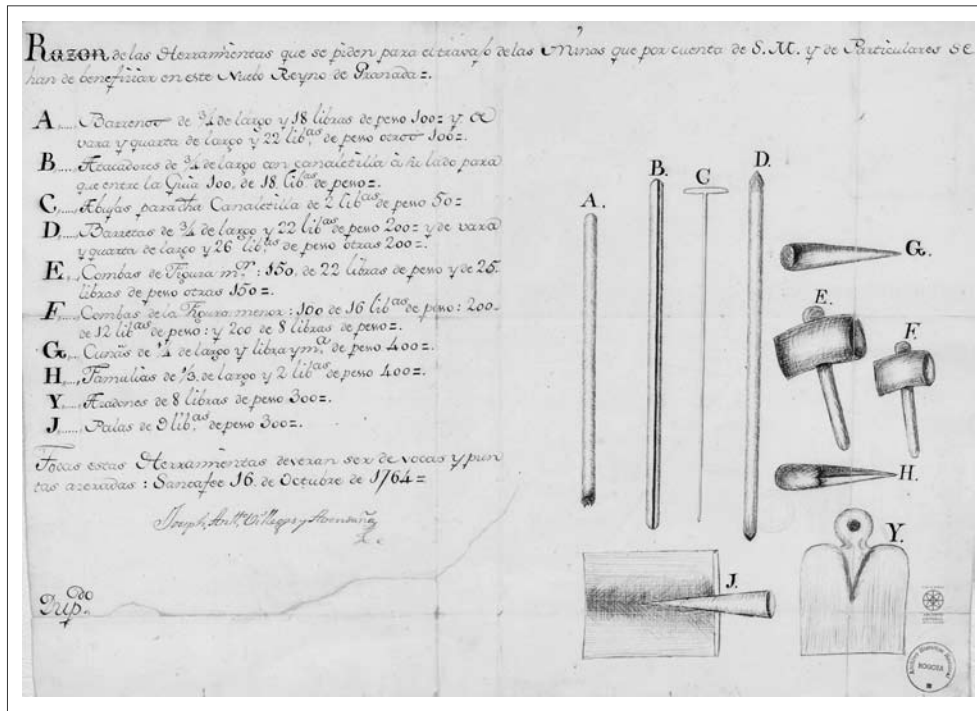 Razon de las Herramientas que se piden para el travajo de las Minas que por cuenta de S.M. y de Particulares se
han de benefiziar en este Nuebo Reyno de Granada=.
A,..... Barrenos de ¾ de largo y 18 libras de peso 100= y de
vara y quarta de largo y 22 lib.as de peso otros 100=.
B,..... Atacadores de ¾ de largo con canaletilla à un lado para
que entre la Guia 100, de 18 lib.as de peso=.
C,..... Abujas para dha Canaletilla de 2 lib.as de peso 50=
D,..... Barretas de ¾ de largo y 22 lib.as de peso 200= y de vara
y quarta de largo y 26 lib.as de peso otras 200=.
E,..... Combas de Figura m.or: 150, de 22 libras de peso y de 25
libras de peso otras 150=.
F,..... Combas de la Figura menor: 100 de 16 lib.as de peso: 200
de 12 lib.as de peso: y 200 de 8 libras de peso=.
G,..... Cuñas de ¼ de largo y libra y m.a de peso 400=.
H,..... Famulias de ⅓ de largo y 2 lib.as de peso 400=.
Y,..... Azadones de 8 libras de peso 300=.
J,..... Palas de 9 lib.as de peso 300=.
Todas estas Herramientas deveran ser de vocas y pun
tas azeradas: Santafee 16. de Octubre de 1764=
Joseph Ant.o Villegas y Avendaño
Dup.do
A.
B.
C
D.
G.
E.
F.
H.
Y.
J.
BOGOTA